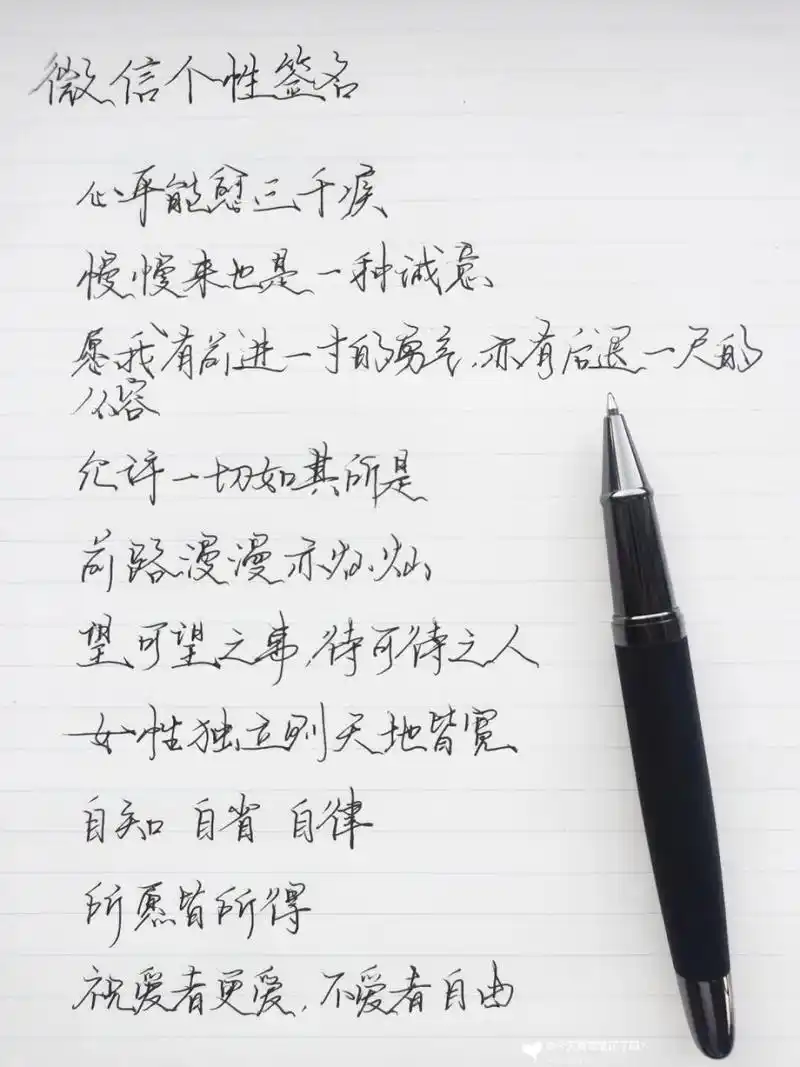 微信个性签名
心平能愈三千疾
慢慢来也是一种诚意
愿我有前进一寸的勇气,亦有后退一尺的
从容
允许一切如其所是
前路漫漫亦灿灿
望可望之事,待可待之人
女性独立则天地皆宽
自知 自省 自律
所愿皆所得
祝爱者更爱,不爱者自由